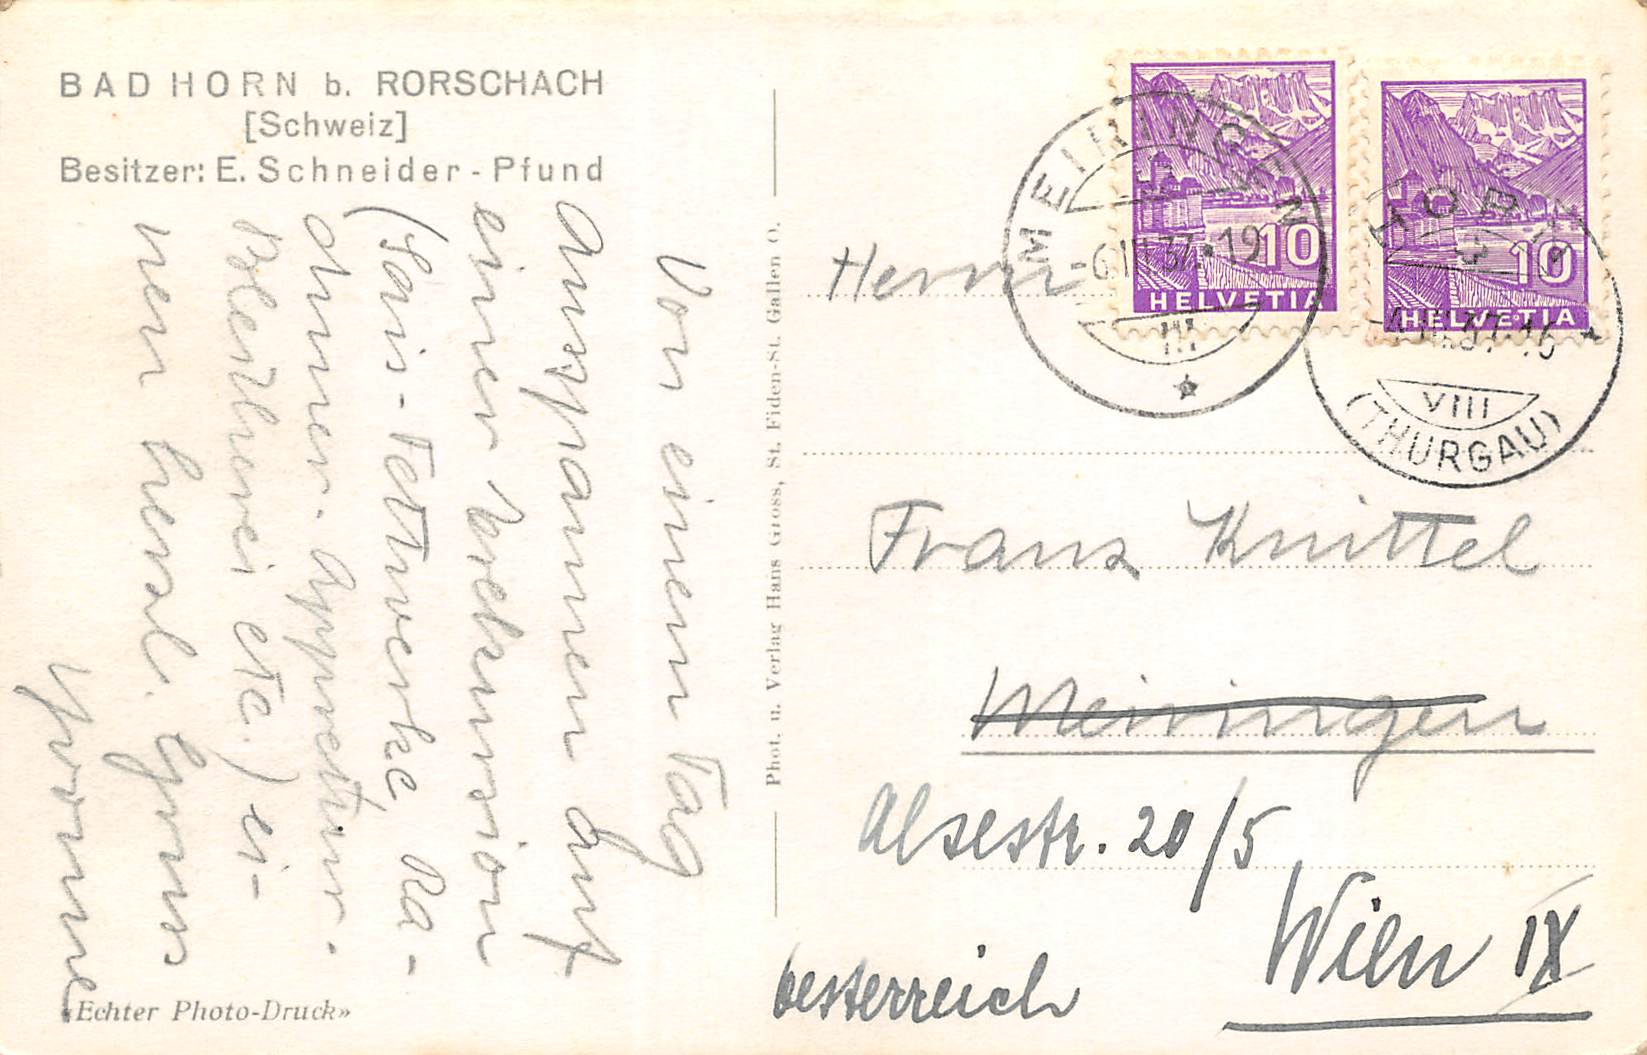 BAD HORN b. RORSCHACH
[Schweiz]
Besitzer: E. Schneider-Pfund
Von einem Tag
Ausspannen auf
einer Exkursion
(Sais-Fettwerke, Ra-
dunner-Appretur-
Bleicherei etc.) ei-
nen herzl. Gruss
Yvonne
«Echter Photo-Druck»
Phot. u. Verlag Hans Gross, St. Fiden-St. Gallen O.
MEIRINGEN
-6.III.37.19
III
HELVETIA
10
HORN
VIII
(THURGAU)
HELVETIA
10
Herrn
Franz Knittel
Meiringen
Alsestr. 20/5
Wien IX
Oesterreich